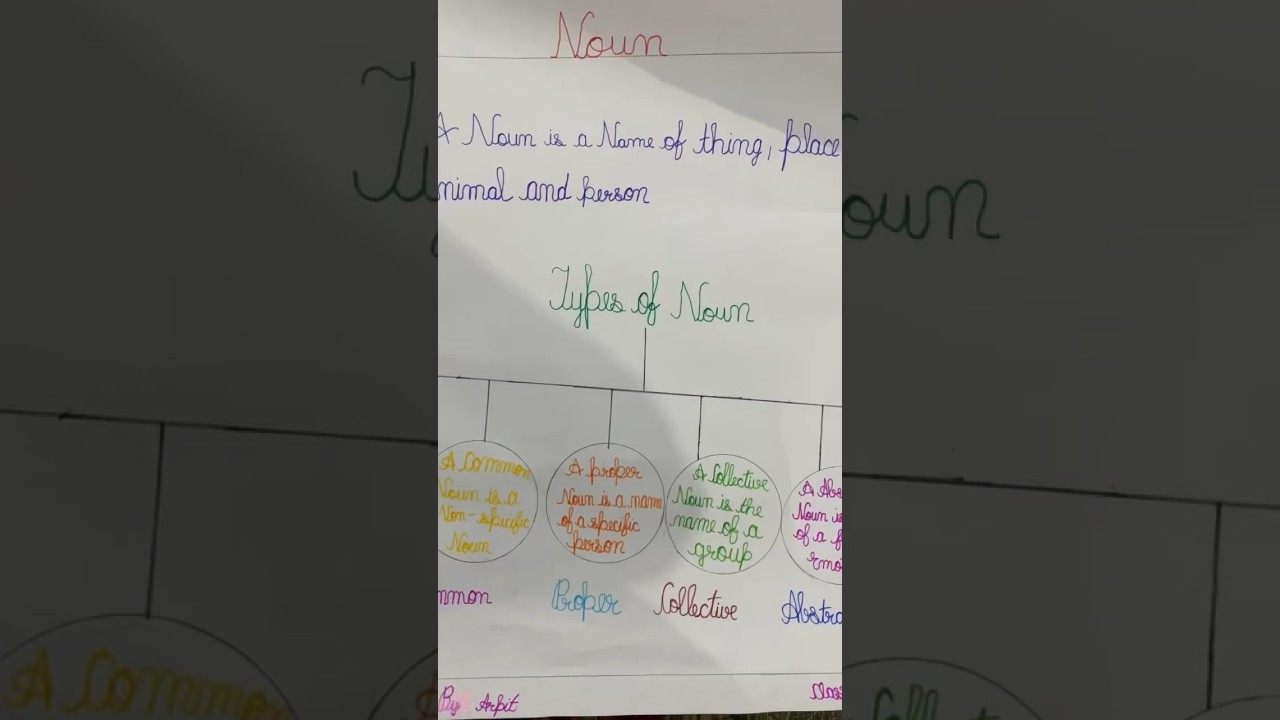 Noun
A Noun is a Name of thing, place
nimal and person
Types of Noun
A Common
Noun is a
Non-specific
Noun
A proper
Noun is a name
of a specific
person
A Collective
Noun is the
name of a
group
A Abs
Noun is
of a f
Emo
mmon
Proper
Collective
Abstra
By Arpit
Clas